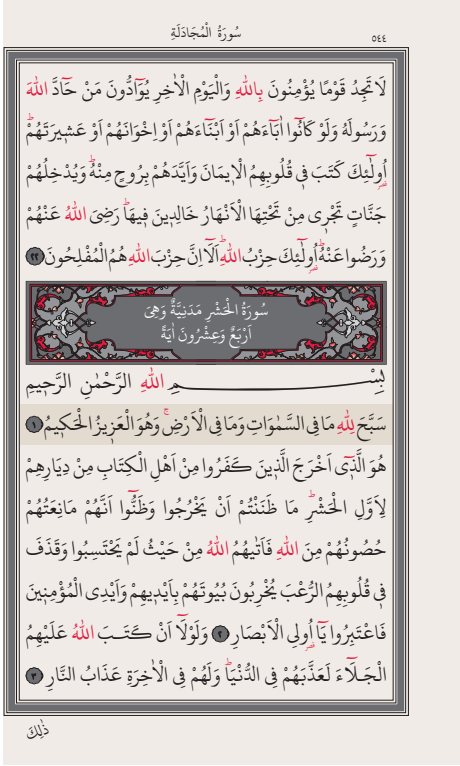 سُورَةُ الْمُجَادَلَةِ
٥٤٤
لَا تَجِدُ قَوْمًا يُؤْمِنُونَ بِاللّٰهِ وَالْيَوْمِ الْاٰخِرِ يُوَٓادُّونَ مَنْ حَٓادَّ اللّٰهَ
وَرَسُولَهُ وَلَوْ كَانُٓوا اٰبَٓاءَهُمْ اَوْ اَبْنَٓاءَهُمْ اَوْ اِخْوَانَهُمْ اَوْ عَشٖيرَتَهُمْؕ
اُو۬لٰٓئِكَ كَتَبَ فٖي قُلُوبِهِمُ الْاٖيمَانَ وَاَيَّدَهُمْ بِرُوحٍ مِنْهُؕ وَيُدْخِلُهُمْ
جَنَّاتٍ تَجْرٖي مِنْ تَحْتِهَا الْاَنْهَارُ خَالِدٖينَ فٖيهَاؕ رَضِيَ اللّٰهُ عَنْهُمْ
وَرَضُوا عَنْهُؕ اُو۬لٰٓئِكَ حِزْبُ اللّٰهِؕ اَلَٓا اِنَّ حِزْبَ اللّٰهِ هُمُ الْمُفْلِحُونَ ٢٢
سُورَةُ الْحَشْرِ مَدَنِيَّةٌ وَهِيَ
اَرْبَعٌ وَعِشْرُونَ اٰيَةً
بِسْمِ اللّٰهِ الرَّحْمٰنِ الرَّحٖيمِ
سَبَّحَ لِلّٰهِ مَا فِي السَّمٰوَاتِ وَمَا فِي الْاَرْضِۚ وَهُوَ الْعَزٖيزُ الْحَكٖيمُ ١
هُوَ الَّـذٖٓي اَخْرَجَ الَّذٖينَ كَفَرُوا مِنْ اَهْلِ الْكِتَابِ مِنْ دِيَارِهِمْ
لِاَوَّلِ الْحَشْرِؕ مَا ظَنَنْتُمْ اَنْ يَخْرُجُوا وَظَنُّٓوا اَنَّهُمْ مَانِعَتُهُمْ
حُصُونُهُمْ مِنَ اللّٰهِ فَاَتٰيهُمُ اللّٰهُ مِنْ حَيْثُ لَمْ يَحْتَسِبُوا وَقَذَفَ
فٖي قُلُوبِهِمُ الرُّعْبَ يُخْرِبُونَ بُيُوتَهُمْ بِاَيْدٖيهِمْ وَاَيْدِي الْمُؤْمِنٖينَ
فَاعْتَبِرُوا يَٓا اُو۬لِي الْاَبْصَارِ ٢ وَلَوْلَٓا اَنْ كَتَـبَ اللّٰهُ عَلَيْهِمُ
الْجَـلَٓاءَ لَعَذَّبَهُمْ فِي الدُّنْيَاؕ وَلَهُمْ فِي الْاٰخِرَةِ عَذَابُ النَّارِ ٣
ذٰلِكَ